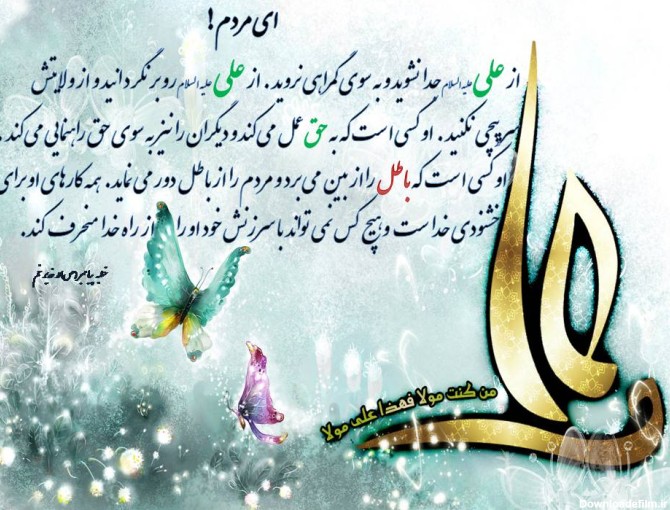 ای مردم!
از علی علیه السلام جدا نشوید و به سوی گمراهی نروید. از علی علیه السلام رو برنگردانید و از ولایتش
سرپیچی نکنید. او کسی است که به حق عمل می کند و دیگران را نیز به سوی حق راهنمایی می کند.
او کسی است که باطل را از بین می برد و مردم را از باطل دور می نماید. همه کارهای او برای
خشنودی خداست و هیچ کس نمی تواند با سرزنش خود او را از راه خدا منحرف کند.
خطبه پیامبر اسلام در غدیر خم
علی
من کنت مولا فهذا علی مولا
Downloadefilm.ir